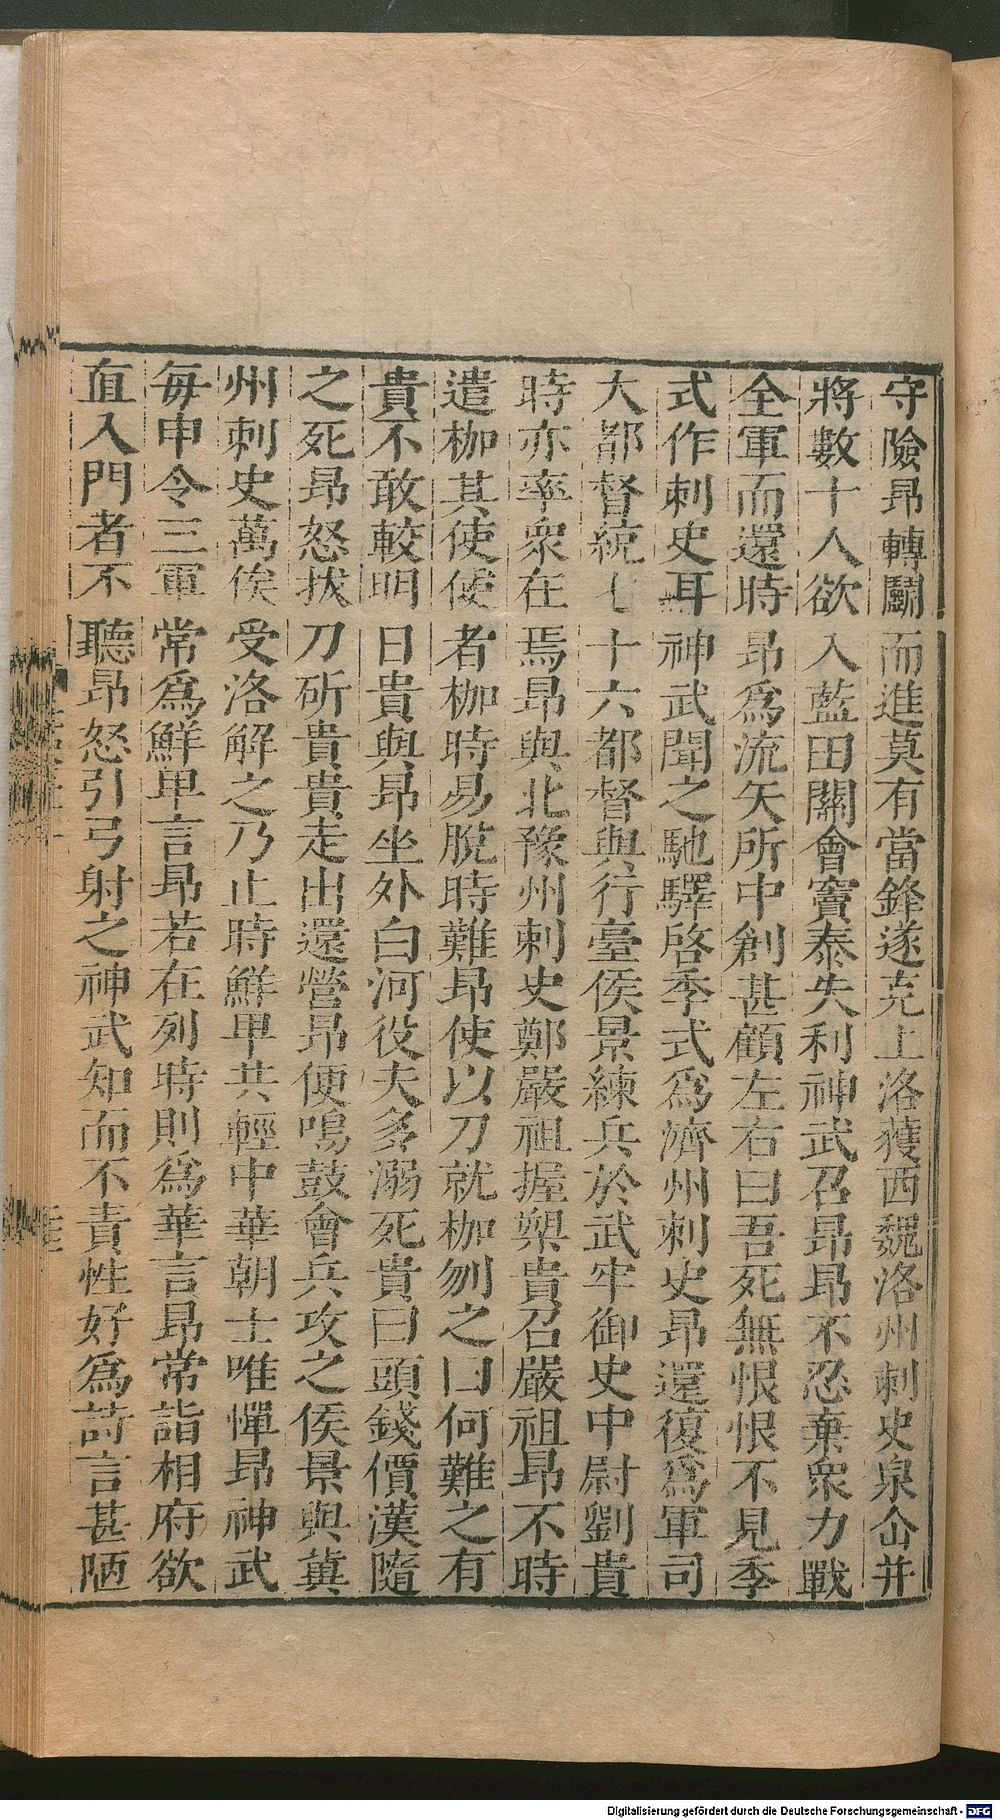 守險昂轉鬬而進莫有當鋒遂克上洛獲西魏洛州刺史泉仚并
將數十人欲入藍田關會竇泰失利神武召昂昂不忍棄衆力戰
全軍而還時昂爲流矢所中創甚顧左右曰吾死無恨恨不見季
式作刺史耳神武聞之馳驛啓季式爲濟州刺史昂還復爲軍司
大都督統七十六都督與行臺侯景練兵於武牢御史中尉劉貴
時亦率衆在焉昂與北豫州刺史鄭嚴祖握槊貴召嚴祖昂不時
遣枷其使使者枷時易脫時難昂使以刀就枷刎之曰何難之有
貴不敢較明日貴與昂坐外白河役夫多溺死貴曰頭錢價漢隨
之死昂怒拔刀斫貴貴走出還營昂便鳴鼓會兵攻之侯景與冀
州刺史萬俟受洛解之乃止時鮮卑共輕中華朝士唯憚昂神武
每申令三軍常爲鮮卑言昂若在列時則爲華言昂常詣相府欲
直入門者不聽昂怒引弓射之神武知而不責性好爲詩言甚陋
Digitalisierung gefördert durch die Deutsche Forschungsgemeinschaft - DFG